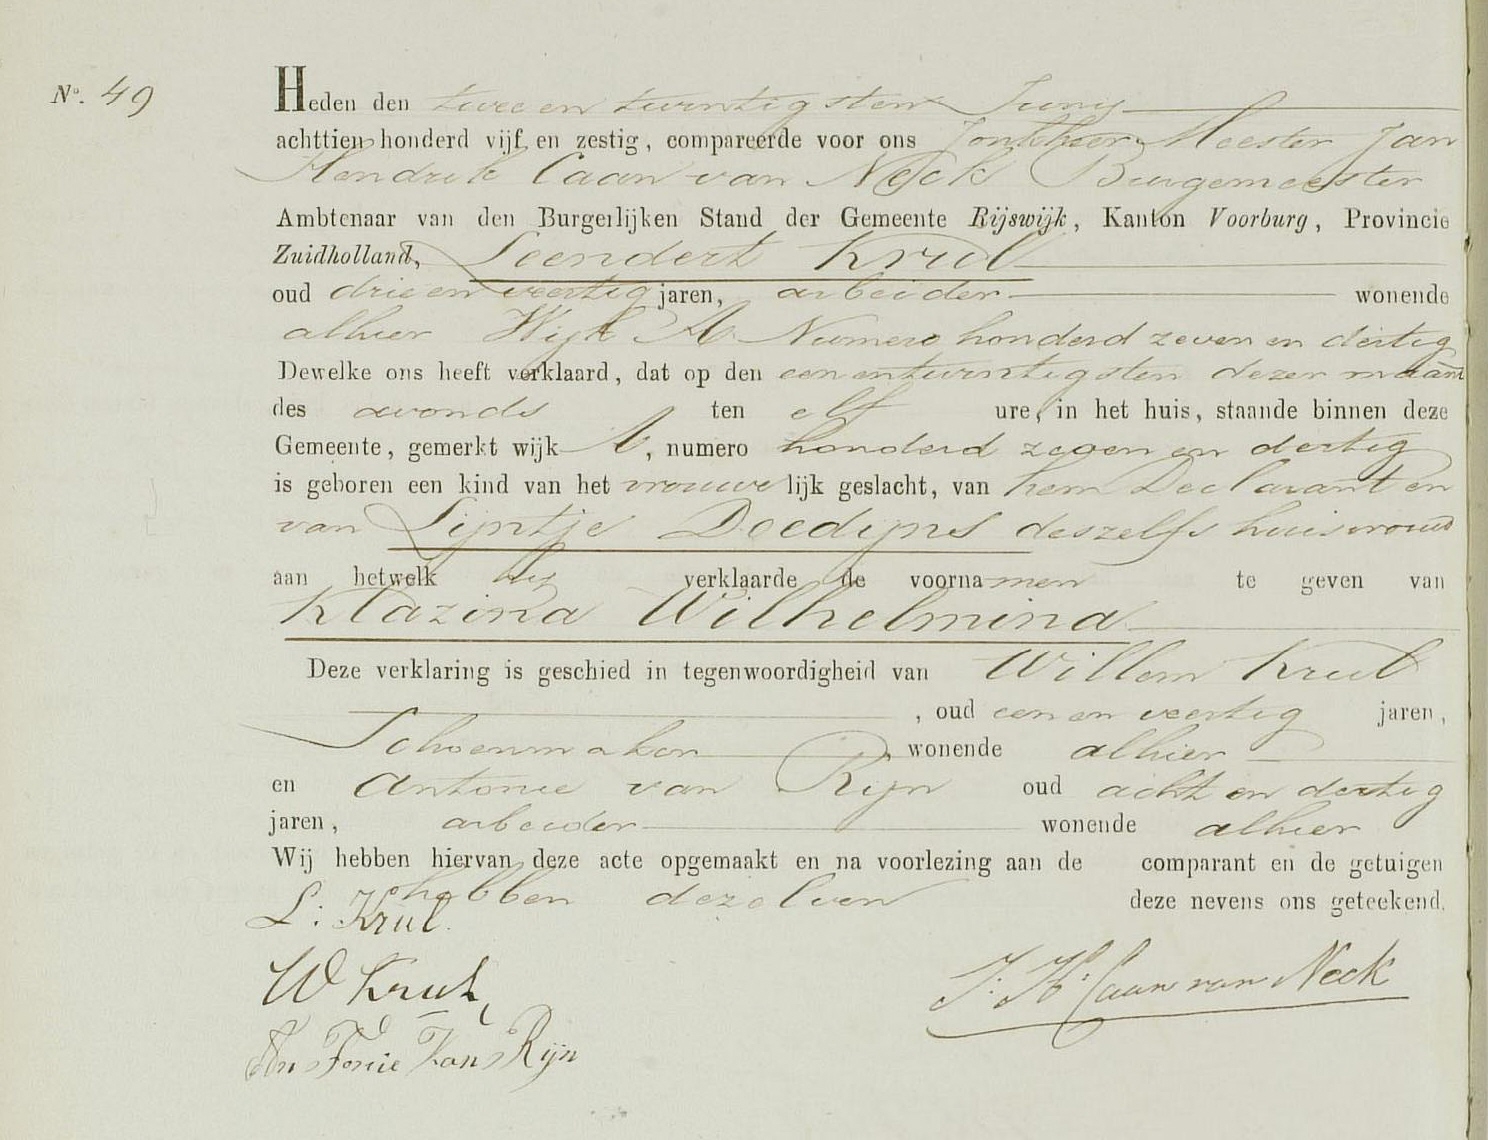 No. 49
Heden den twee en twintigsten Junij
achttien honderd vijf en zestig, compareerde voor ons Jonkheer Meester Jan
Hendrik Caan van Neck Burgemeester
Ambtenaar van den Burgerlijken Stand der Gemeente Rijswijk, Kanton Voorburg, Provincie
Zuidholland, Leendert Krul
oud drie en veertig jaren, arbeider wonende
alhier Wijk A Numero honderd zeven en dertig
Dewelke ons heeft verklaard, dat op den een en twintigsten dezer maand
des avonds ten elf ure, in het huis, staande binnen deze
Gemeente, gemerkt wijk A, numero honderd zeven en dertig
is geboren een kind van het vrouwelijk geslacht, van hem Declarant en
van Lijntje Doedijns deszelfs huisvrouw
aan hetwelk hij verklaarde de voornamen te geven van
Klazina Wilhelmina
Deze verklaring is geschied in tegenwoordigheid van Willem Krul
, oud een en veertig jaren,
Schoenmaker wonende alhier
en Antonie van Rijn oud acht en dertig
jaren, arbeider wonende alhier
Wij hebben hiervan deze acte opgemaakt en na voorlezing aan de comparant en de getuigen
hebben dezelven deze nevens ons geteekend.
L: Krul.
W Krul
J: H: Caan van Neck
An Tonie Van Rijn